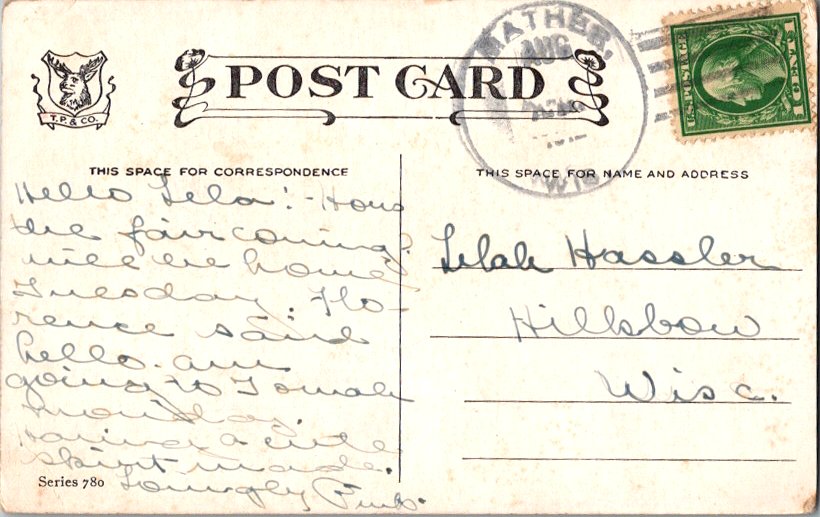 POST CARD
T.P. & CO.
MATHER,
AUG
WIS
U.S. POSTAGE
1 CENT 1
THIS SPACE FOR CORRESPONDENCE
THIS SPACE FOR NAME AND ADDRESS
Hello Lela! - Hows
the fair coming?
will be home
Tuesday. Flo-
rence said
hello. am
going to Tomah
monday.
having a
skirt made.
Lovingly
Series 780
Lelah Hassler
Hillsboro
Wisc.